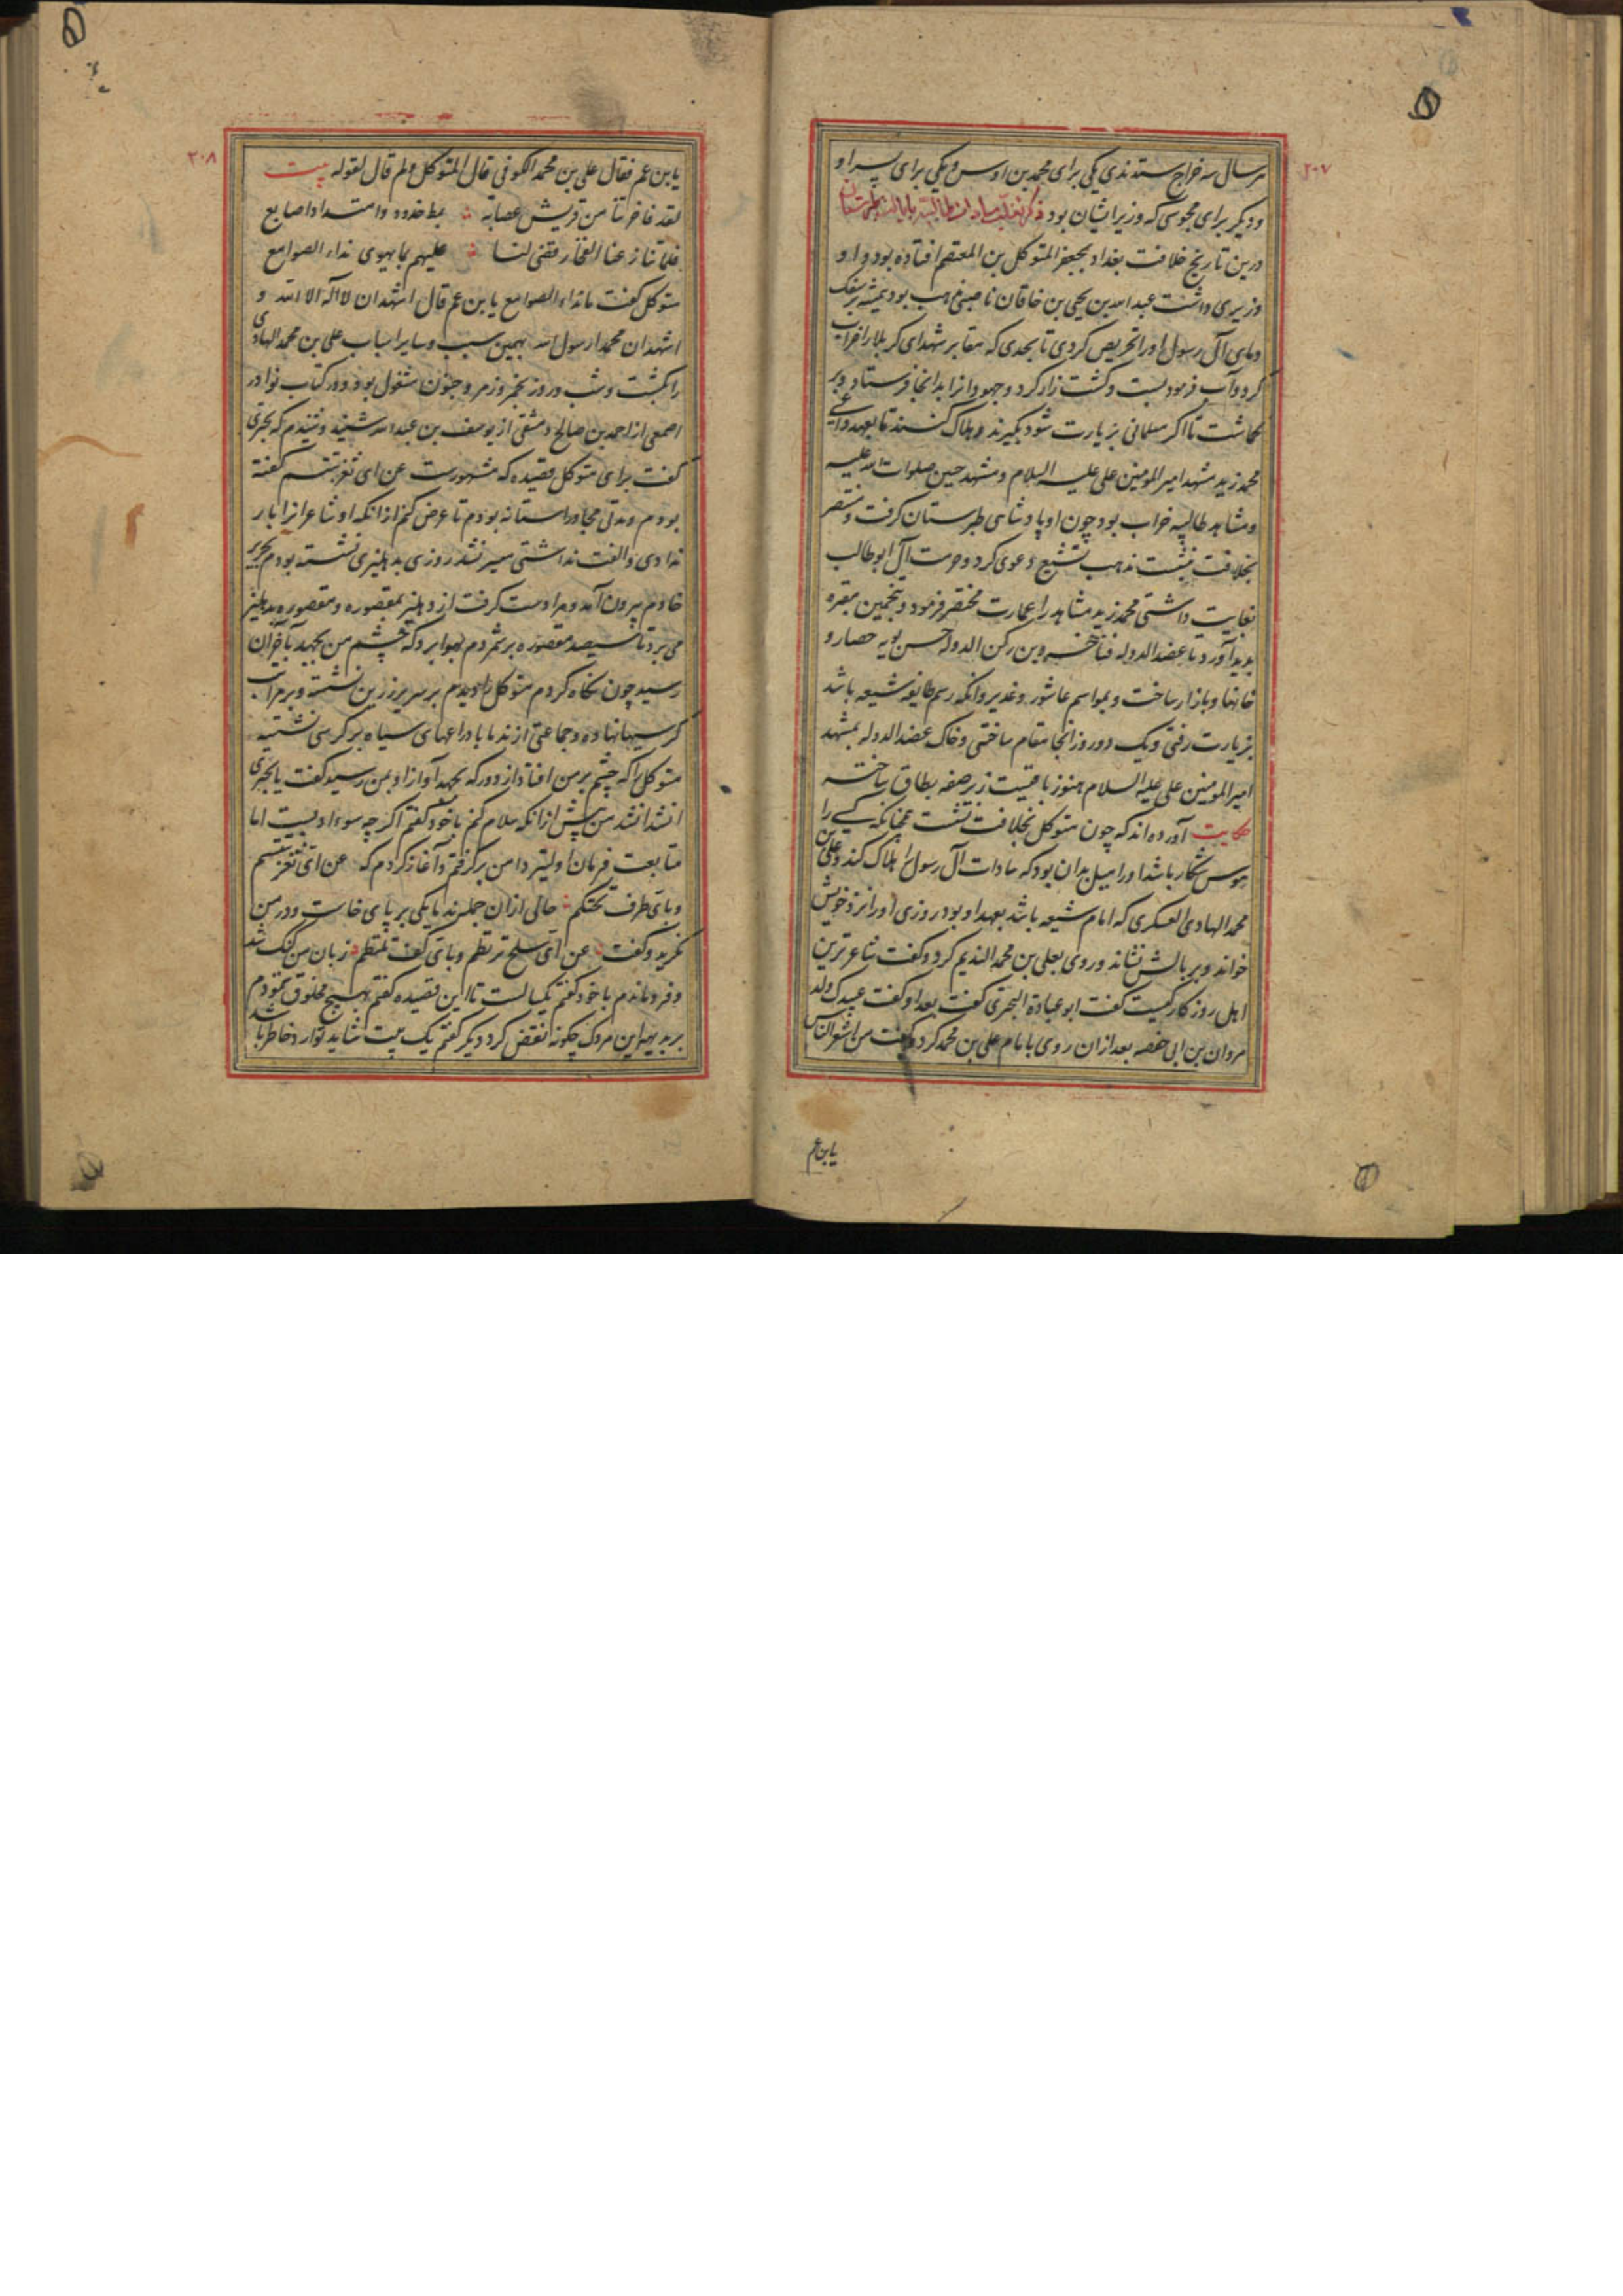 ۲۰۷
هر سال سه خراج ستدندی یکی برای محمد بن اوس و یکی برای پسر او
و دیگر برای مجوسی که وزیر ایشان بود ذکر تغلب سادات طالبیه بایالت طبرستان
درین تاریخ خلافت بغداد بجعفر المتوکل بن المعتصم افتاده بود و او
وزیری داشت عبدالله بن یحیی بن خاقان ناصبی مذهب بود همیشه بر سفک
دمای آل رسول او را تحریص کردی تا بحدی که مقابر شهدای کربلا را خراب
کرد و آب فرمود بست و کشت زار کرد و جهودان را بدانجا فرستاد و بر
گماشت تا اگر مسلمانی بزیارت شود بگیرند و هلاک کنند تا بعهد داعی
محمد زید مشهد امیر المومنین علی علیه السلام و مشهد حسین صلوات الله علیه
و مشاهد طالبیه خراب بود چون او پادشاهی طبرستان گرفت و منتصر
بخلافت بنشست مذهب تشیع دعوی کرد و حرمت آل ابوطالب
بغایت داشتی محمد زید مشاهد را عمارت مختصر فرمود و همچنین مقبره
پدید آورد تا عضد الدوله فناخسرو بن رکن الدوله حسن بویه حصار و
خانها و بازار ساخت و بمواسم عاشور و غدیر و آنکه رسم طایفه شیعه باشد
بزیارت رفتی و یک دو روز آنجا مقام ساختی و خاک عضد الدوله بمشهد
امیر المومنین علی علیه السلام هنوز باقیست زیر صفه بطاق ساخته
حکایت آورده اند که چون متوکل بخلافت نشست همچنانکه کسی را
هوس شکار باشد او را میل بدان بود که سادات آل رسول را هلاک کند و علی بن
محمد الهادی العسکری که امام شیعه باشد بعهد او بود روزی او را نزد خویش
خواند و بر بالش نشاند و روی بعلی بن محمد الندیم کرد و گفت شاعرترین
اهل روزگار کیست گفت ابو عبادة البحتری گفت بعد او گفت عبیدک ولد
مروان بن ابی حفصه بعد از آن روی با امام علی بن محمد کرد و گفت من اشعر الناس
یا بن عم
۲۰۸
یا بن عم فقال علی بن محمد الکوفی قال المتوکل و لم قال لقوله بیت
لقد فاخرتنا من قریش عصابة بمط خدود و امتداد اصابع
فلما تنازعنا الفخار قضی لنا علیهم بما یهوی نداء الصوامع
متوکل گفت ما نداء الصوامع یا بن عم قال اشهد ان لا اله الا الله و
اشهد ان محمدا رسول الله بهمین سبب و سایر اسباب علی بن محمد الهادی
را بکشت و شب و روز بخمر و زمر و مجون مشغول بود و در کتاب نوادر
اصمعی از احمد بن صالح دمشقی از یوسف بن عبدالله شنید و شنیدم که بحتری
گفت برای متوکل قصیده که مشهورست عن ای ثغر تبتسم گفته
بودم و مدتی مجاور استانه بودم تا عرض کنم از آنکه او شاعر انرا بار
ندادی و الفت نداشتی میسر نشد روزی بدهلیزی نشسته بودم تحریر
خادم بیرون آمد و مرا دست گرفت از دهلیز بمقصوره و مقصوره بدهلیز
می برد تا سیصد مقصوره برشمردم بهوا برد که چشم من بجهد با خران
رسید چون نگاه کردم متوکل را دیدم بر سریر زرین نشسته و بر مراتب
کرسیها نهاده و جماعتی از ندما با دراعهای سیاه بر کرسی نشسته
متوکل را که چشم بر من افتاد از دور که بجهد آواز او بمن رسید گفت یا بحتری
انشد انشد من پیش از آنکه سلام کنم با خود گفتم اگر چه سوء ادبیست اما
متابعت فرمان اولیتر دامن برگرفتم و آغاز کردم که عن ای ثغر تبتسم
و بای طرف تحتکم حالی از آن جمله ندما یکی بر پای خاست و در من
نگرید و گفت عن ای سلح ترتطم و بای کف تلتطم زبان من گنگ شد
و فرو ماندم با خود گفتم یکسالست تا این قصیده گفتم بهیچ مخلوق ننمودم
بر بدیهه این مردک چگونه نقض کرد دیگر گفتم یک بیت شاید توارد خاطر باشد